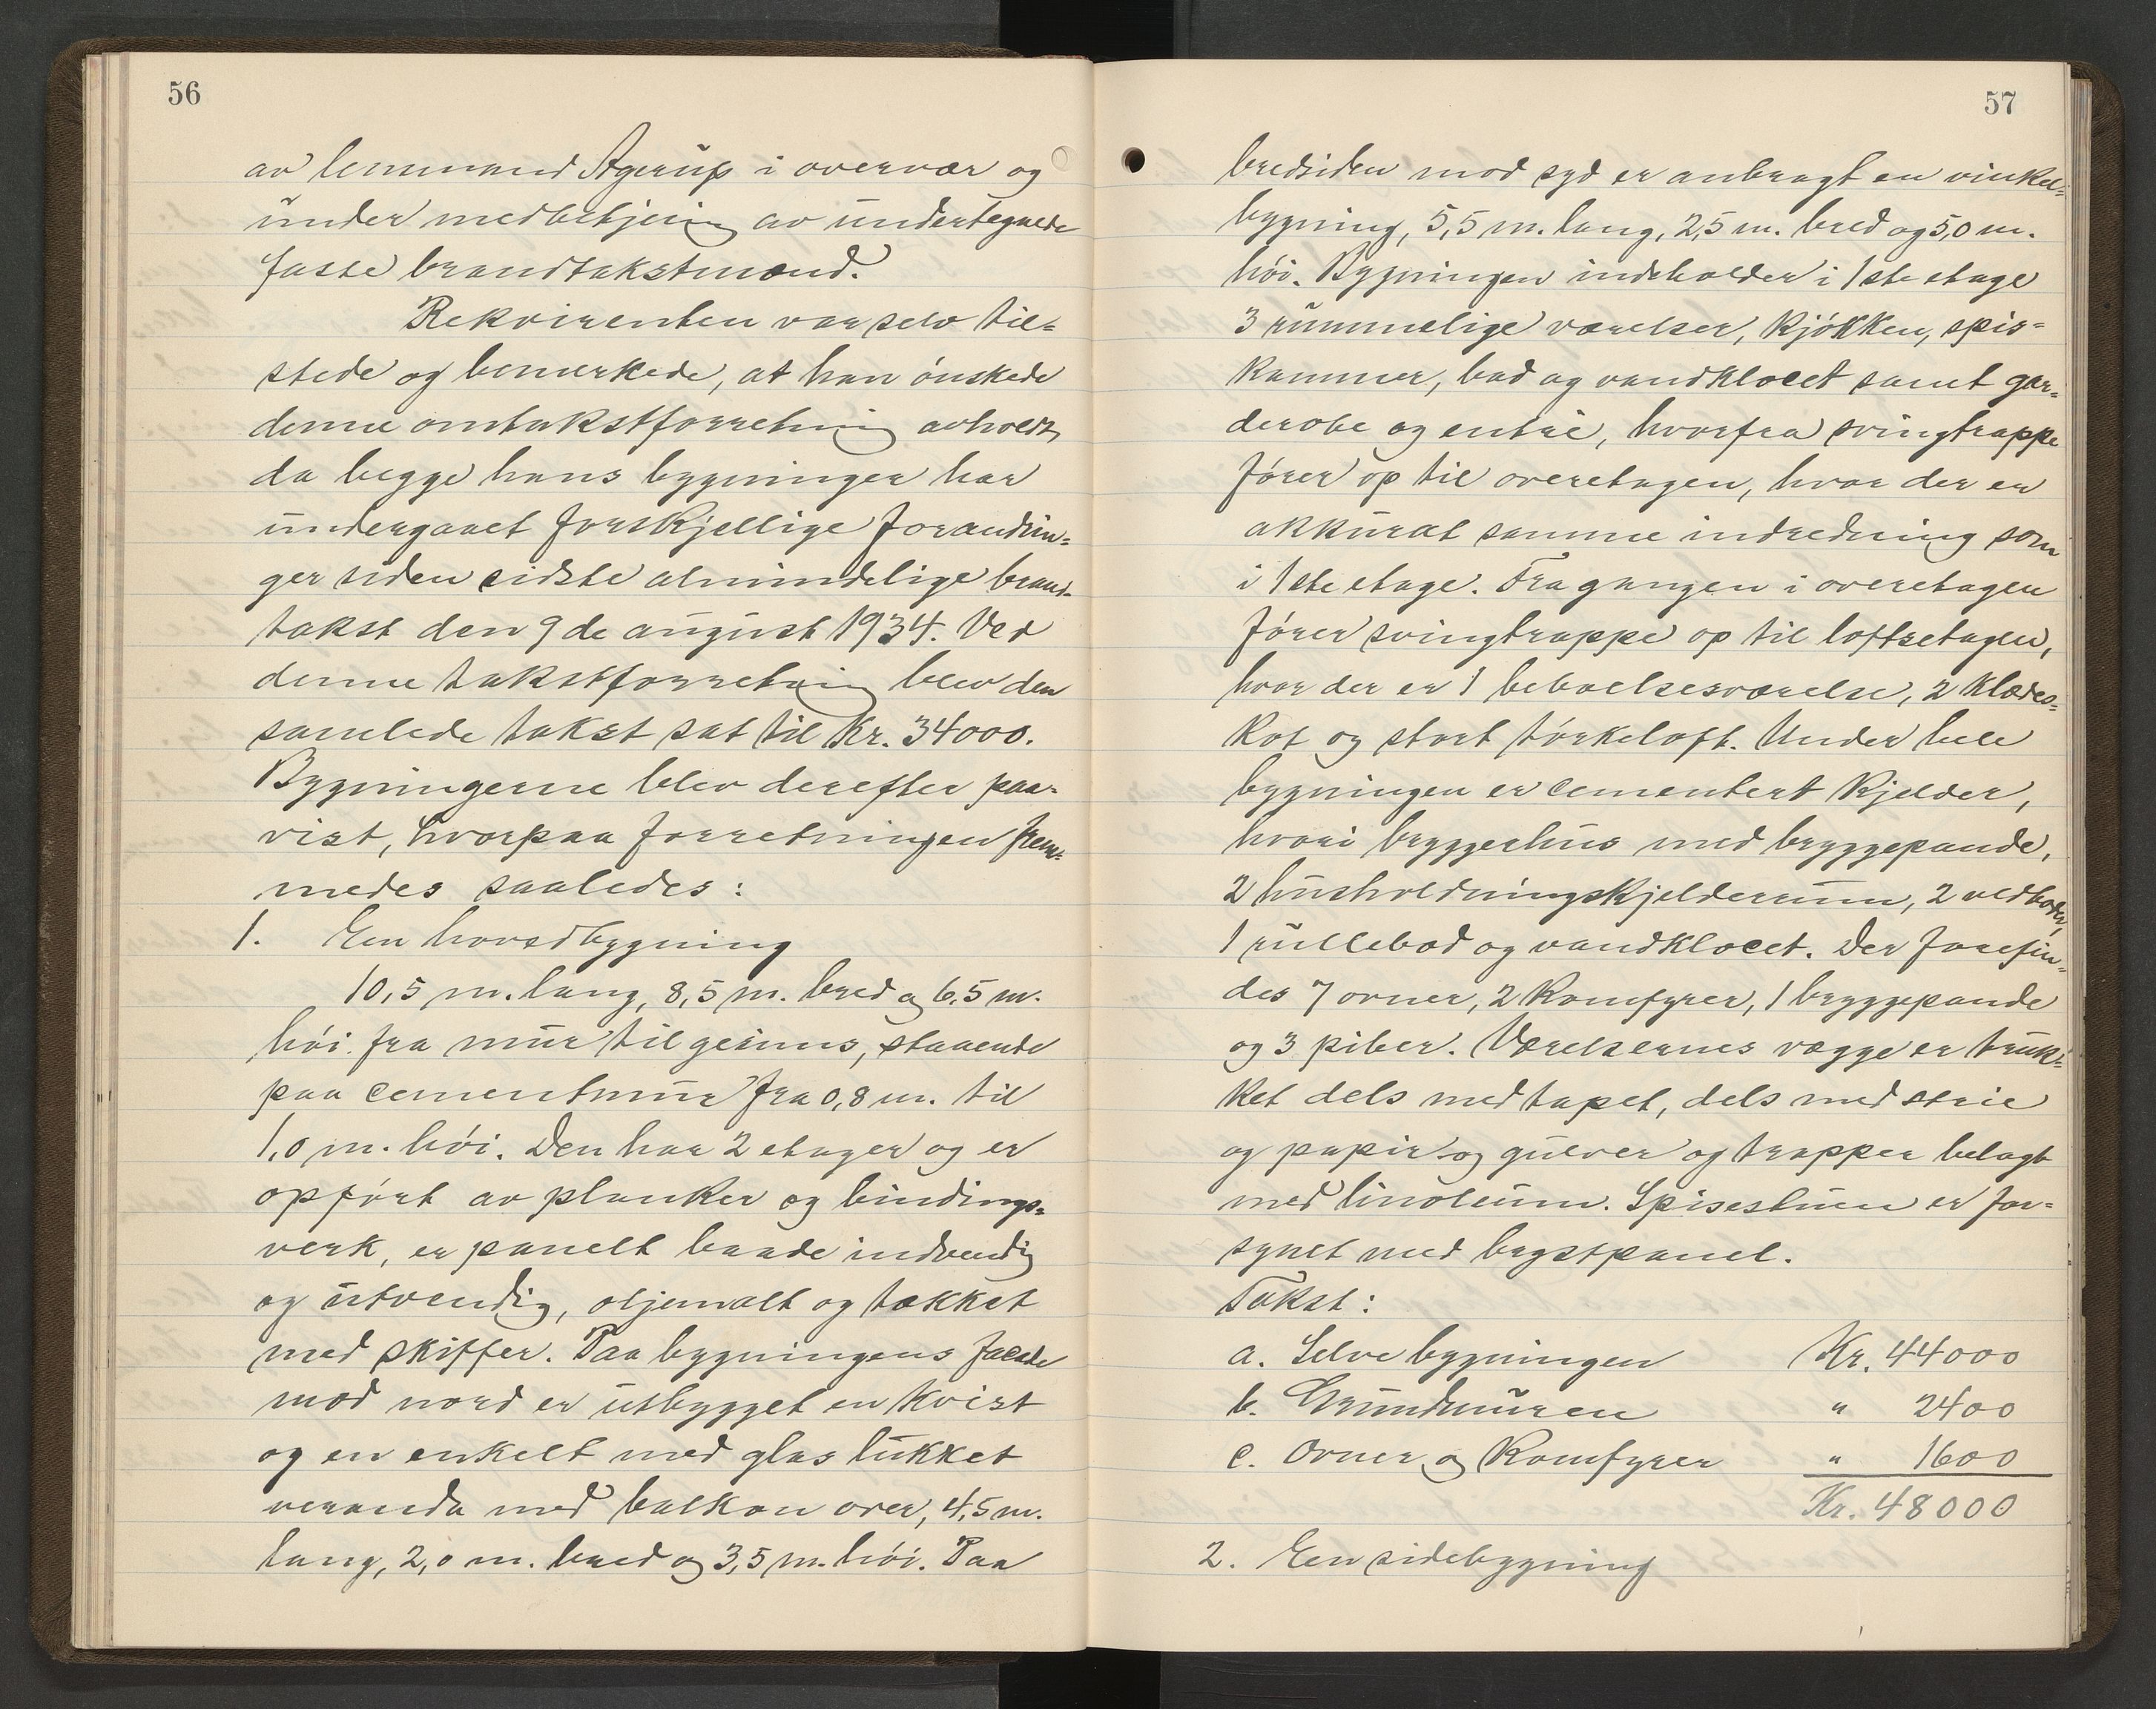 56
av lensmand Agerup i overvær og
under medbetjening av undertegnede
faste brandtakstmænd.
Rekvirenten var selv til=
stede og bemerkede, at han ønskede
denne omtakstforretning avholdt,
da begge hans bygninger har
undergaaet forskjellige forandrin=
ger siden sidste almindelige brand-
takst den 9de august 1934. Ved
denne takstforretning blev den
samlede takst sat til Kr. 34000.
Bygningerne blev derefter paa-
vist, hvorpaa forretningen frem-
medes saaledes:
1. En hovedbygning
10,5 m. lang, 8,5 m. bred og 6,5 m.
høi fra mur til gesims, staaende
paa cementmur fra 0,8 m. til
1,0 m. høi. Den har 2 etager og er
opført av planker og bindings=
verk, er panelt baade indvendig
og utvendig, oljemalt og tækket
med skiffer. Paa bygningens facade
mod nord er utbygget en kvist
og en enkelt med glas lukket
veranda med balkon over, 4,5 m.
lang, 2,0 m. bred og 3,5 m. høi. Paa
57
bredsiden mod syd er anbragt en vinkel=
bygning, 5,5 m. lang, 2,5 m. bred og 5,0 m.
høi. Bygningen indeholder i 1ste etage
3 rummelige værelser, kjøkken, spis=
kammer, bad og vandklocet samt gar=
derobe og entré, hvorfra svingtrappe
fører op til overetagen, hvor der er
akkurat samme indredning som
i 1ste etage. Fra gangen i overetagen
fører svingtrappe op til loftsetagen,
hvor der er 1 beboelsesværelse, 2 klædes=
kot og stort tørkeloft. Under hele
bygningen er cementert kjelder,
hvori bryggerhus med bryggepande,
2 husholdningskjelderrum, 2 vedboder,
1 rullebod og vandklocet. Der forefin=
des 7 ovner, 2 komfyrer, 1 bryggepande
og 3 piber. Værelsernes vægge er truk=
ket dels med tapet, dels med strie
og papir og gulver og trapper belagt
med linoleum. Spisestuen er for=
synet med brystpanel.
Takst:
a. Selve bygningen Kr. 44000
b. Grundmuren " 2400
c. Ovner og Komfyrer " 1600
Kr. 48000
2. En sidebygning